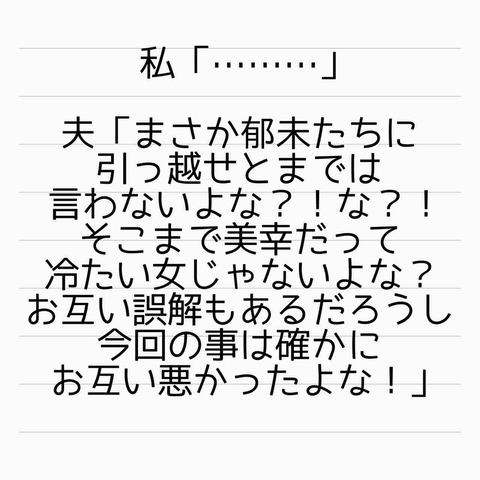 私「………」
夫「まさか郁未たちに
引っ越せとまでは
言わないよな？！な？！
そこまで美幸だって
冷たい女じゃないよな？
お互い誤解もあるだろうし
今回の事は確かに
お互い悪かったよな！」